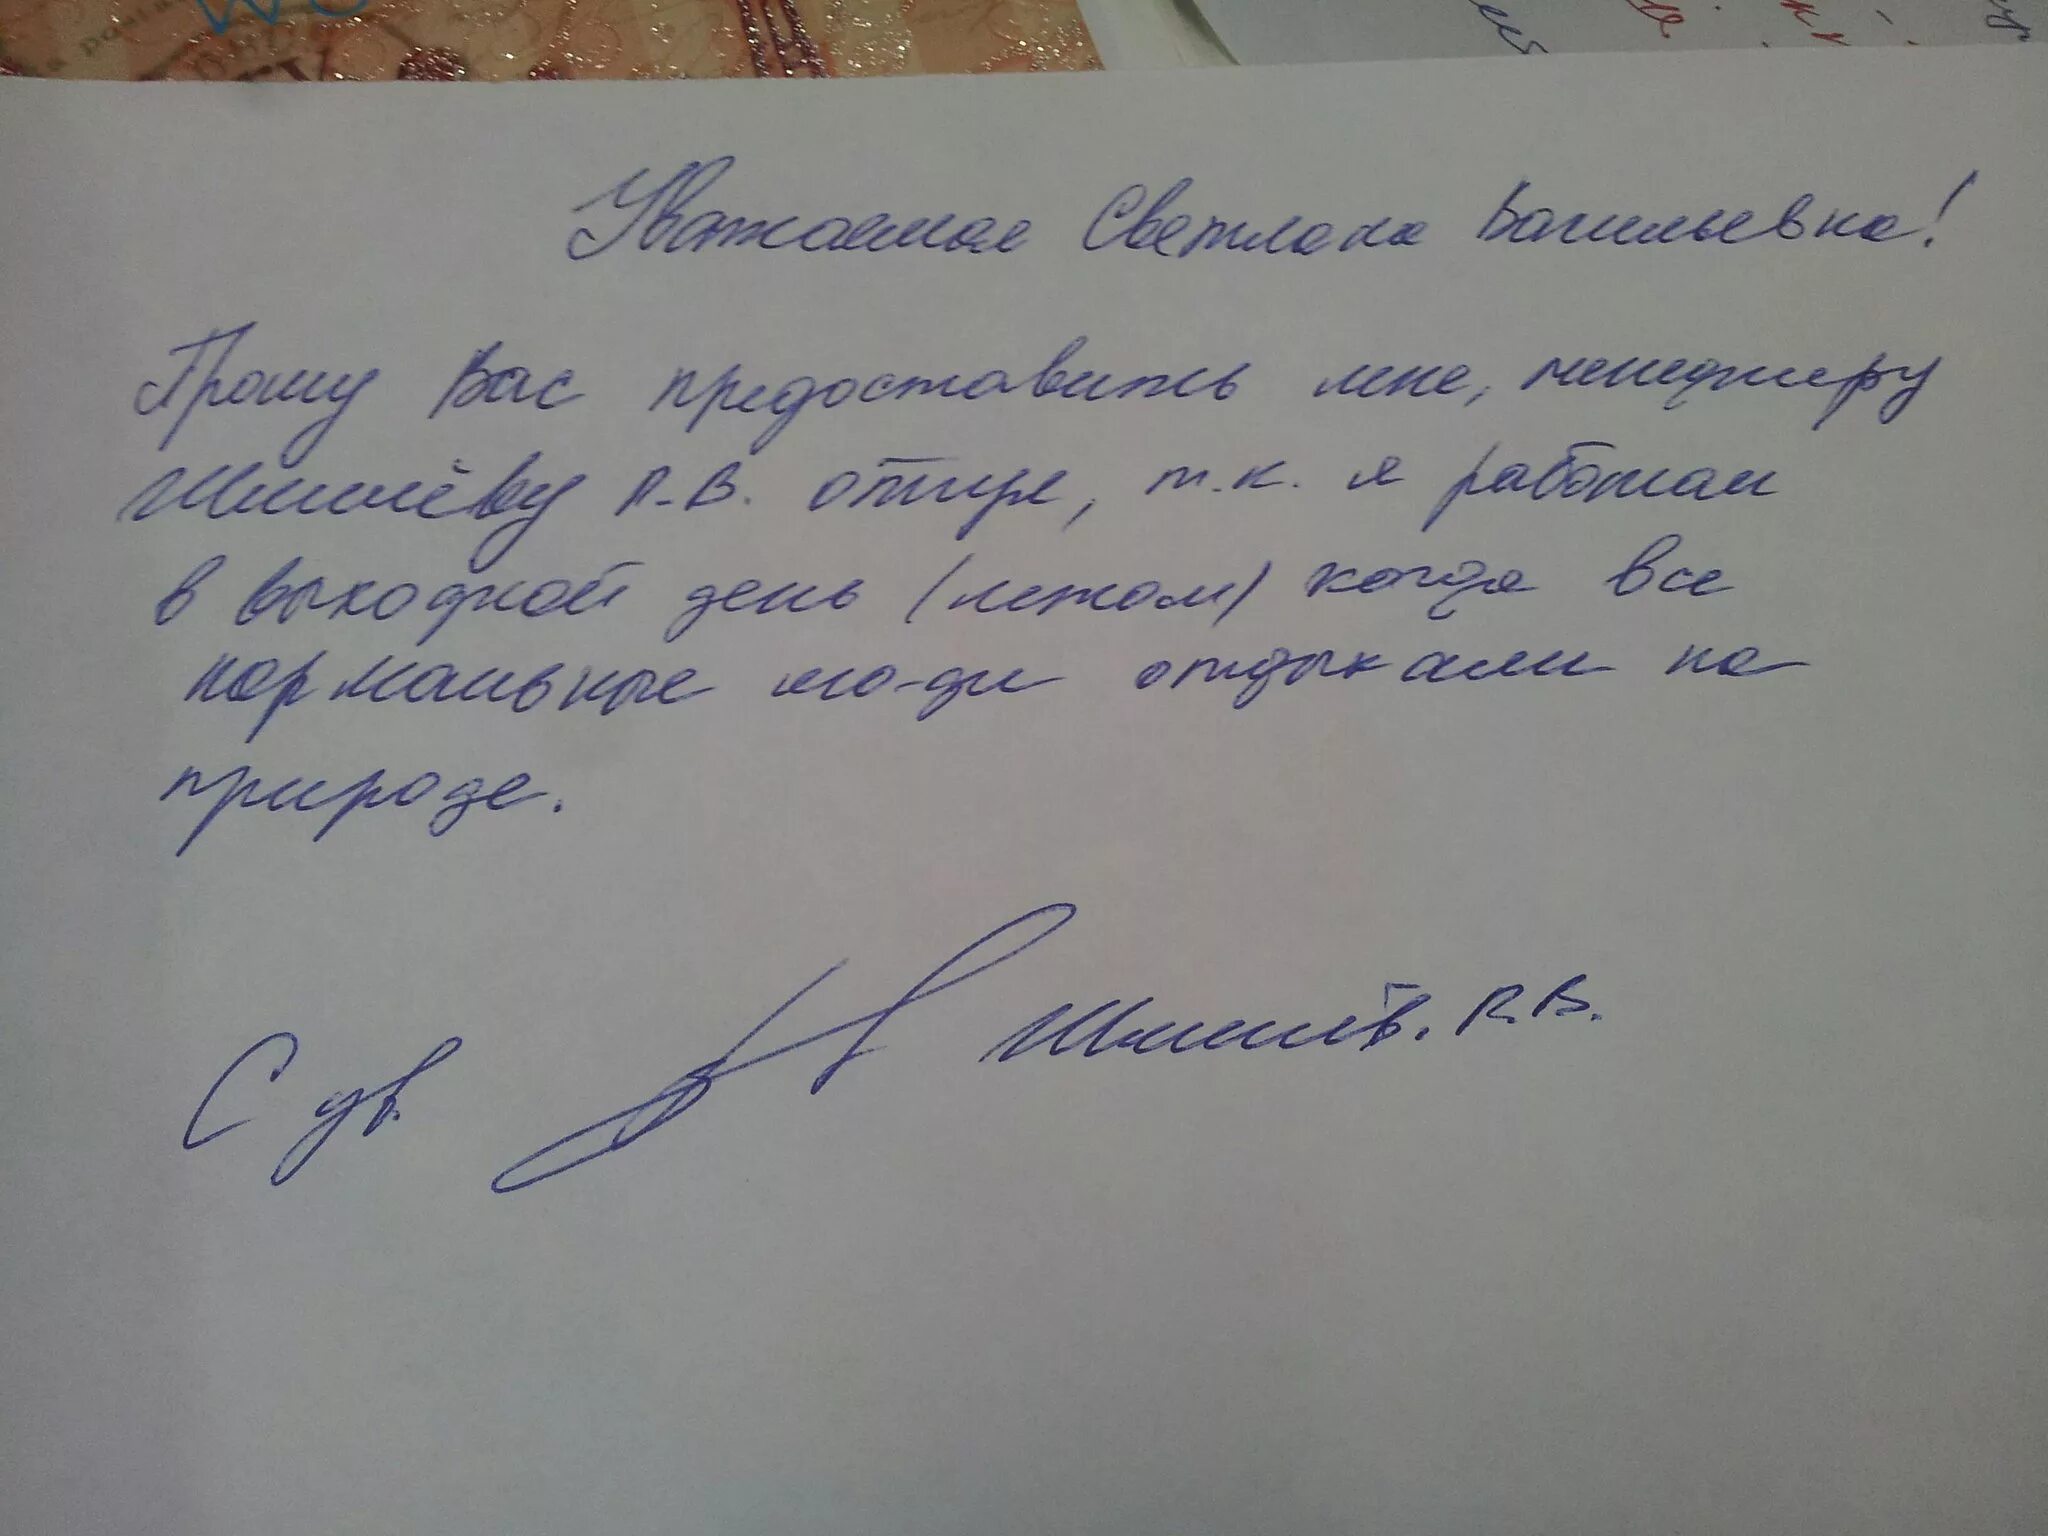 Уважаемая Светлана Васильевна!
Прошу Вас предоставить мне, менеджеру
Шмелёву Р.В. отгул, т.к. я работал
в выходной день (летом) когда все
нормальные лю-ди отдыхали на
природе.
С ув. Р.В.